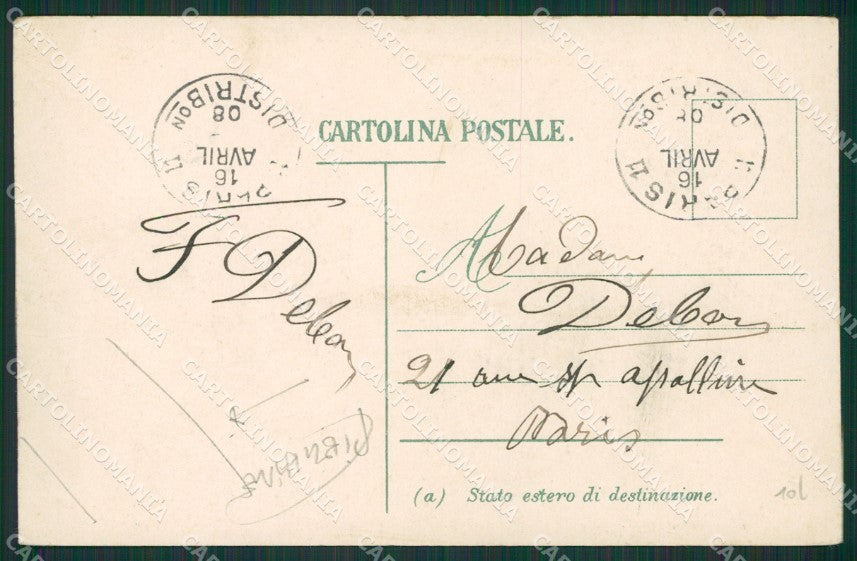 CARTOLINA POSTALE.
PARIS 11 DISTRIBON
16
AVRIL
08
PARIS 11 DISTRIBON
16
AVRIL
08
F Debon
Madame
Debon
21 apolline
Paris
(a) Stato estero di destinazione.
10L
CARTOLINOMANIA